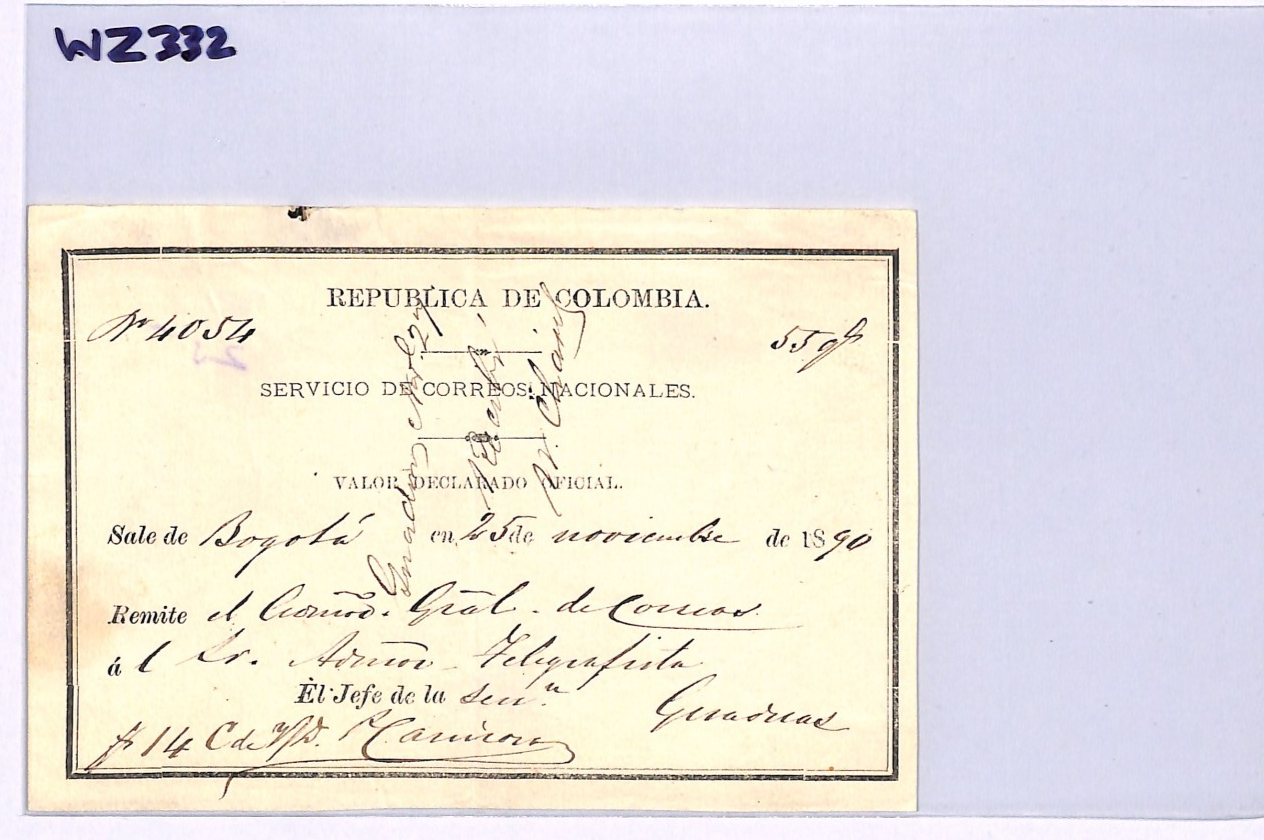 WZ332
REPUBLICA DE COLOMBIA.
Nº 4054
55 gs
SERVICIO DE CORREOS NACIONALES.
VALOR DECLARADO OFICIAL.
Sale de Bogotá en 25 de noviembre de 1890
Remite el Gral. de Correos
á l Sr. Admor Telegrafista
El Jefe de la secn.
Guaduas
$ 14 C de
Guaduas Nov. 27
Recibí